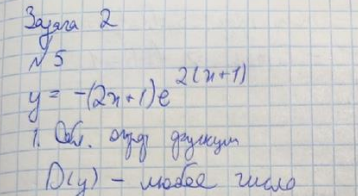 Задача 2
№5
y = -(2x+1)e^{2(x+1)}
1. Обл. опр функции
D(y) - любое число